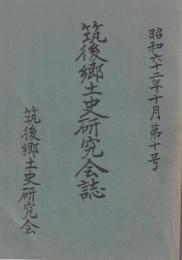 昭和六十二年十月第十号
筑後郷土史研究会誌
筑後郷土史研究会